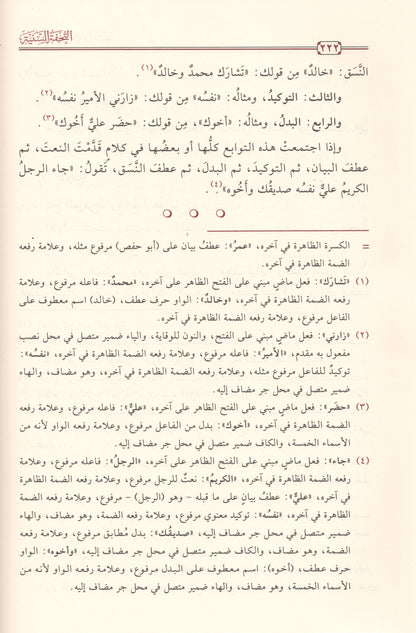 التحفة السنية
٢٢٢
النَّسَق: «خالدٌ» مِن قولك: «تَشاركَ محمدٌ وخالدٌ»(١).
والثالث: التوكيدُ، ومثالُه: «نفسُه» مِن قولك: «زارَني الأميرُ نفسُه»(٢).
والرابع: البدلُ، ومثالُه: «أخوك»، من قولك: «حضَر عليٌّ أَخُوكَ»(٣).
وإذا اجتمعتْ هذه التوابع كلُّها أو بعضُها في كلامٍ قدَّمْتَ النعتَ، ثم
عطفَ البيان، ثم التوكيدَ، ثم البدلَ، ثم عطفَ النَّسق، تَقُولُ: «جاء الرجلُ
الكريمُ عليٌّ نفسُه صديقُك وأَخُوه»(٤).
= الكسرة الظاهرة في آخره، «عمرُ»: عطفُ بيان على (أبو حفص) مرفوع مثله، وعلامة رفعه
الضمة الظاهرة في آخره.
(١) «تَشارَك»: فعل ماضٍ مبني على الفتح الظاهر على آخره، «محمدٌ»: فاعله مرفوع، وعلامة
رفعه الضمة الظاهرة في آخره، «وخالدٌ»: الواو حرف عطف، (خالد) اسم معطوف على
الفاعل مرفوع، وعلامة رفعه الضمة الظاهرة في آخره.
(٢) «زارني»: فعل ماضٍ مبني على الفتح، والنون للوقاية، والياء ضمير متصل في محل نصب
مفعول به مقدم، «الأميرُ»: فاعله مرفوع، وعلامة رفعه الضمة الظاهرة في آخره، «نفسُه»:
توكيدٌ للفاعل مرفوع مثله، وعلامة رفعه الضمة الظاهرة في آخره، وهو مضاف، والهاء
ضمير متصل في محل جر مضاف إليه.
(٣) «حضَر»: فعل ماضٍ مبني على الفتح الظاهر على آخره، «عليٌّ»: فاعله مرفوع، وعلامة رفعه
الضمة الظاهرة في آخره، «أخوك»: بدل من الفاعل مرفوع، وعلامة رفعه الواو لأنه من
الأسماء الخمسة، والكاف ضمير متصل في محل جر مضاف إليه.
(٤) «جاء»: فعل ماضٍ مبني على الفتح الظاهر على آخره، «الرجلُ»: فاعله مرفوع، وعلامة
رفعه الضمة الظاهرة في آخره، «الكريمُ»: نعتٌ للرجل مرفوع، وعلامة رفعه الضمة الظاهرة
في آخره، «عليٌّ»: عطفُ بيانٍ على ما قبله - وهو (الرجل) - مرفوع، وعلامة رفعه الضمة
الظاهرة في آخره، «نفسُه»: توكيد معنوي مرفوع، وعلامة رفعه الضمة، وهو مضاف، والهاء
ضمير متصل في محل جر مضاف إليه، «صديقُك»: بدل مُطابق مرفوع، وعلامة رفعه
الضمة، وهو مضاف، والكاف ضمير متصل في محل جر مضاف إليه، «وأخوه»: الواو
حرف عطف، (أخوه): اسم معطوف على البدل مرفوع، وعلامة رفعه الواو لأنه من
الأسماء الخمسة، وهو مضاف، والهاء ضمير متصل في محل جر مضاف إليه.